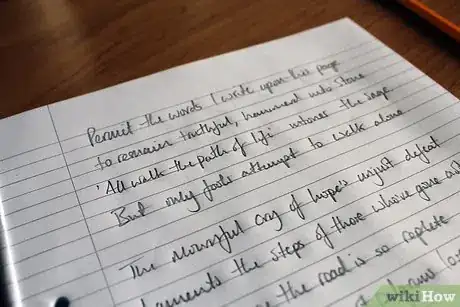 Permit the words I write upon this page
to remain truthful, hammered into stone
'All walk the path of life' intones the sage
But only fools attempt to walk alone
The mournful cry of hope's unjust defeat
Laments the steps of those who've gone
the road is so replete
wikiHow